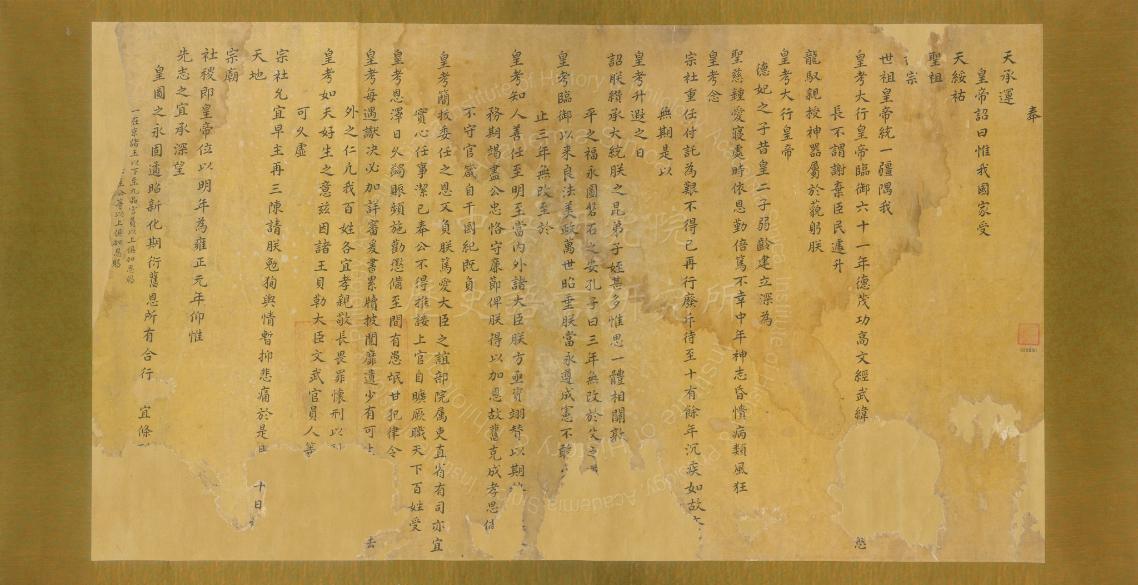 奉
天承運
皇帝詔曰惟我國家受
天綏祐
聖祖
宗
世祖皇帝統一疆隅我
皇考大行皇帝臨御六十一年德茂功高文經武緯
長不謂謝棄臣民遽升
龍馭親授神器屬於藐躬朕
皇考大行皇帝
德妃之子昔皇二子弱齡建立深為
聖慈鍾愛寢處時依恩勤倍篤不幸中年神志昏憒病類風狂
皇考念
宗社重任付託為艱不得已再行廢斥待至十有餘年沉疾如故
無期是以
皇考升遐之日
詔朕纘承大統朕之昆弟子姪甚多惟思一體相關敦
平之福永固磐石之安孔子曰三年無改於父之
皇考臨御以來良法美政萬世昭垂朕當永遵成憲不敢
止三年無改至於
皇考知人善任至明至當內外諸大臣朕方亟資翊替以期
務期竭盡公忠恪守廉節俾朕得以加恩故舊克成孝思儻
不守官箴自干國紀既負
皇考簡拔委任之恩又負朕篤愛大臣之誼部院屬吏直省有司亦宜
實心任事潔己奉公不得推諉上官自曠厥職天下百姓受
皇考恩澤日久蠲賑頻施勸懲備至間有愚氓甘犯律令
皇考每遇讞決必加詳審爰書累牘披閱靡遺少有可
去
外之仁凡我百姓各宜孝親敬長畏罪懷刑以
皇考如天好生之意茲因諸王貝勒大臣文武官員人等
可久虛
宗社允宜早主再三陳請朕勉狥輿情暫抑悲痛於是
十日
天地
宗廟
社稷即皇帝位以明年為雍正元年仰惟
先志之宜承深望
皇圖之永固遹昭新化期衍舊恩所有合行 宜條
一在京諸王以下至九品官員以上俱加恩賜
公等以上俱加恩賜